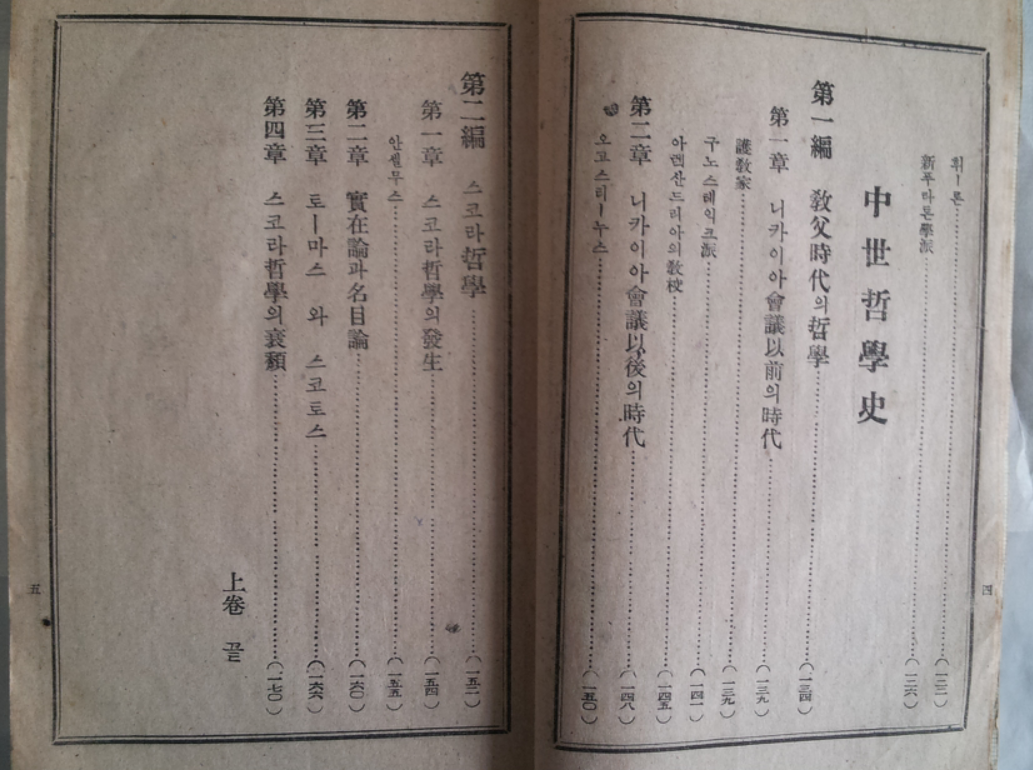 휘ー론 (一三二)
新푸라톤學派 (一三六)
中世哲學史
第一編 敎父時代의哲學 (一三四)
第一章 니카이아會議以前의時代 (一三九)
護敎家 (一三九)
구노스테익크派 (一四一)
아렉산드리아의敎校 (一四五)
第二章 니카이아會議以後의時代 (一四八)
오고스티ー누스 (一五〇)
四
第二編 스코라哲學 (一五二)
第一章 스코라哲學의發生 (一五四)
안셀무스 (一五五)
第二章 實在論과名目論 (一六〇)
第三章 토ー마스 와 스코토스 (一六六)
第四章 스코라哲學의衰頹 (一七〇)
上卷 끝
五